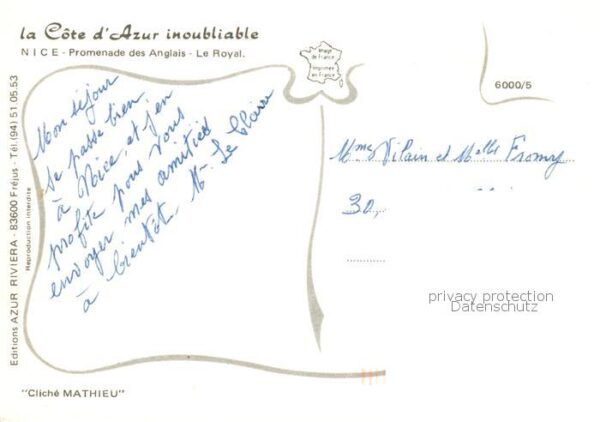 la Côte d'Azur inoubliable
NICE - Promenade des Anglais - Le Royal.
Image
de France
Imprimée
en France
6000/5
Editions AZUR RIVIERA - 83600 Fréjus - Tél. (94) 51.05.53
Reproduction interdite
Mon séjour
se passe bien
à Nice, et j'en
profite pour vous
envoyer mes amitiés
à bientôt. M. Le
Mme Vilain et Melles Fromy
30,
privacy protection
Datenschutz
"Cliché MATHIEU"